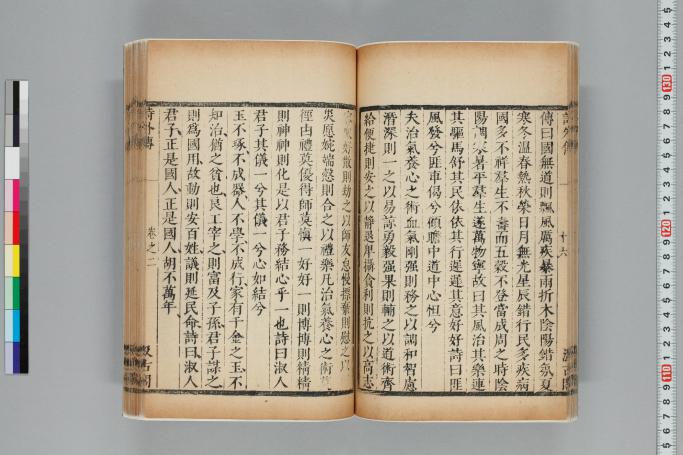 傳曰國無道則飄風厲疾暴雨折木陰陽錯氛夏
寒冬溫春熱秋榮日月無光星辰錯行民多疾病
國多不祥羣生不壽而五穀不登當成周之時陰
陽調寒暑平羣生遂萬物寧故曰其風治其樂連
其驅馬舒其民依依其行遲遲其意好好詩曰匪
風發兮匪車偈兮顧瞻中道中心怛兮
夫治氣養心之術血氣剛强則務之以調和智慮
潛深則一之以易諒勇毅强果則輔之以道術齊
給便捷則安之以靜退卑攝貪利則抗之以高志
好散則劫之以師友怠慢摽棄則慰之以
災愿婉端慤則合之以禮樂凡治氣養心之術
徑由禮莫優得師莫慎一好好一則博博則精精
則神神則化是以君子務結心乎一也詩曰淑人
君子其儀一兮其儀一兮心如結兮
玉不琢不成器人不學不成行家有千金之玉不
知治猶之貧也良工宰之則富及子孫君子謀之
則爲國用故動則安百姓議則延民命詩曰淑人
君子正是國人正是國人胡不萬年
詩外傳
卷之二